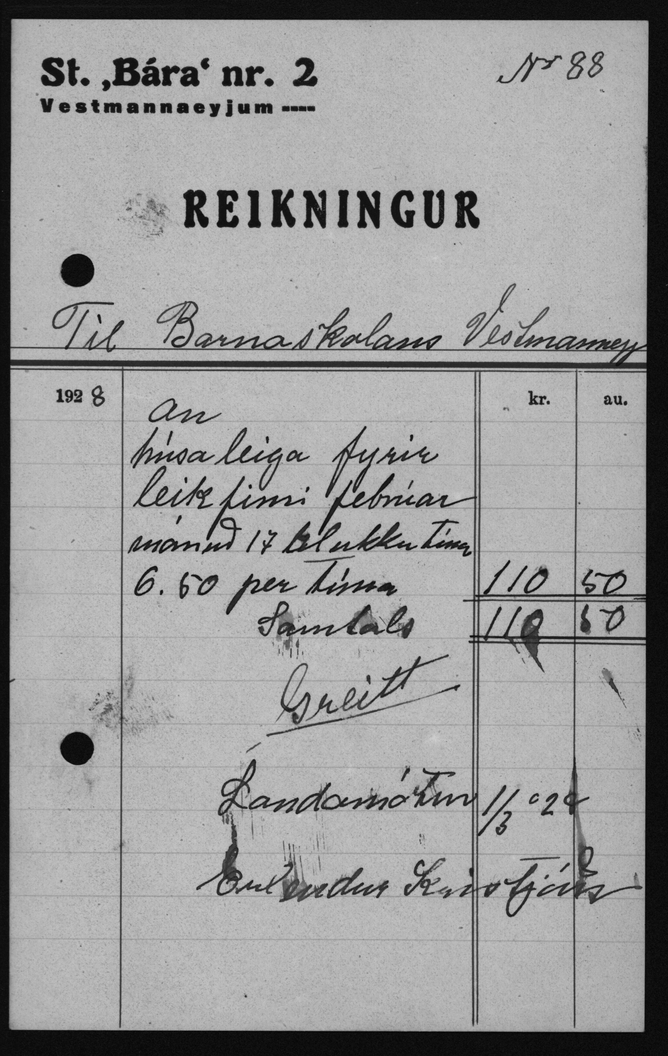 St. ‚Bára‘ nr. 2
Nr 88
Vestmannaeyjum
REIKNINGUR
Til Barnaskolans Vestmanney
1928 kr. au.
an
húsaleiga fyrir
leikfimi febrúar
mánuð 17 klukkutíma
6.50 per tíma 110 50
Samtals 110 50
Greitt
1/3
Erlendur Kristjáns